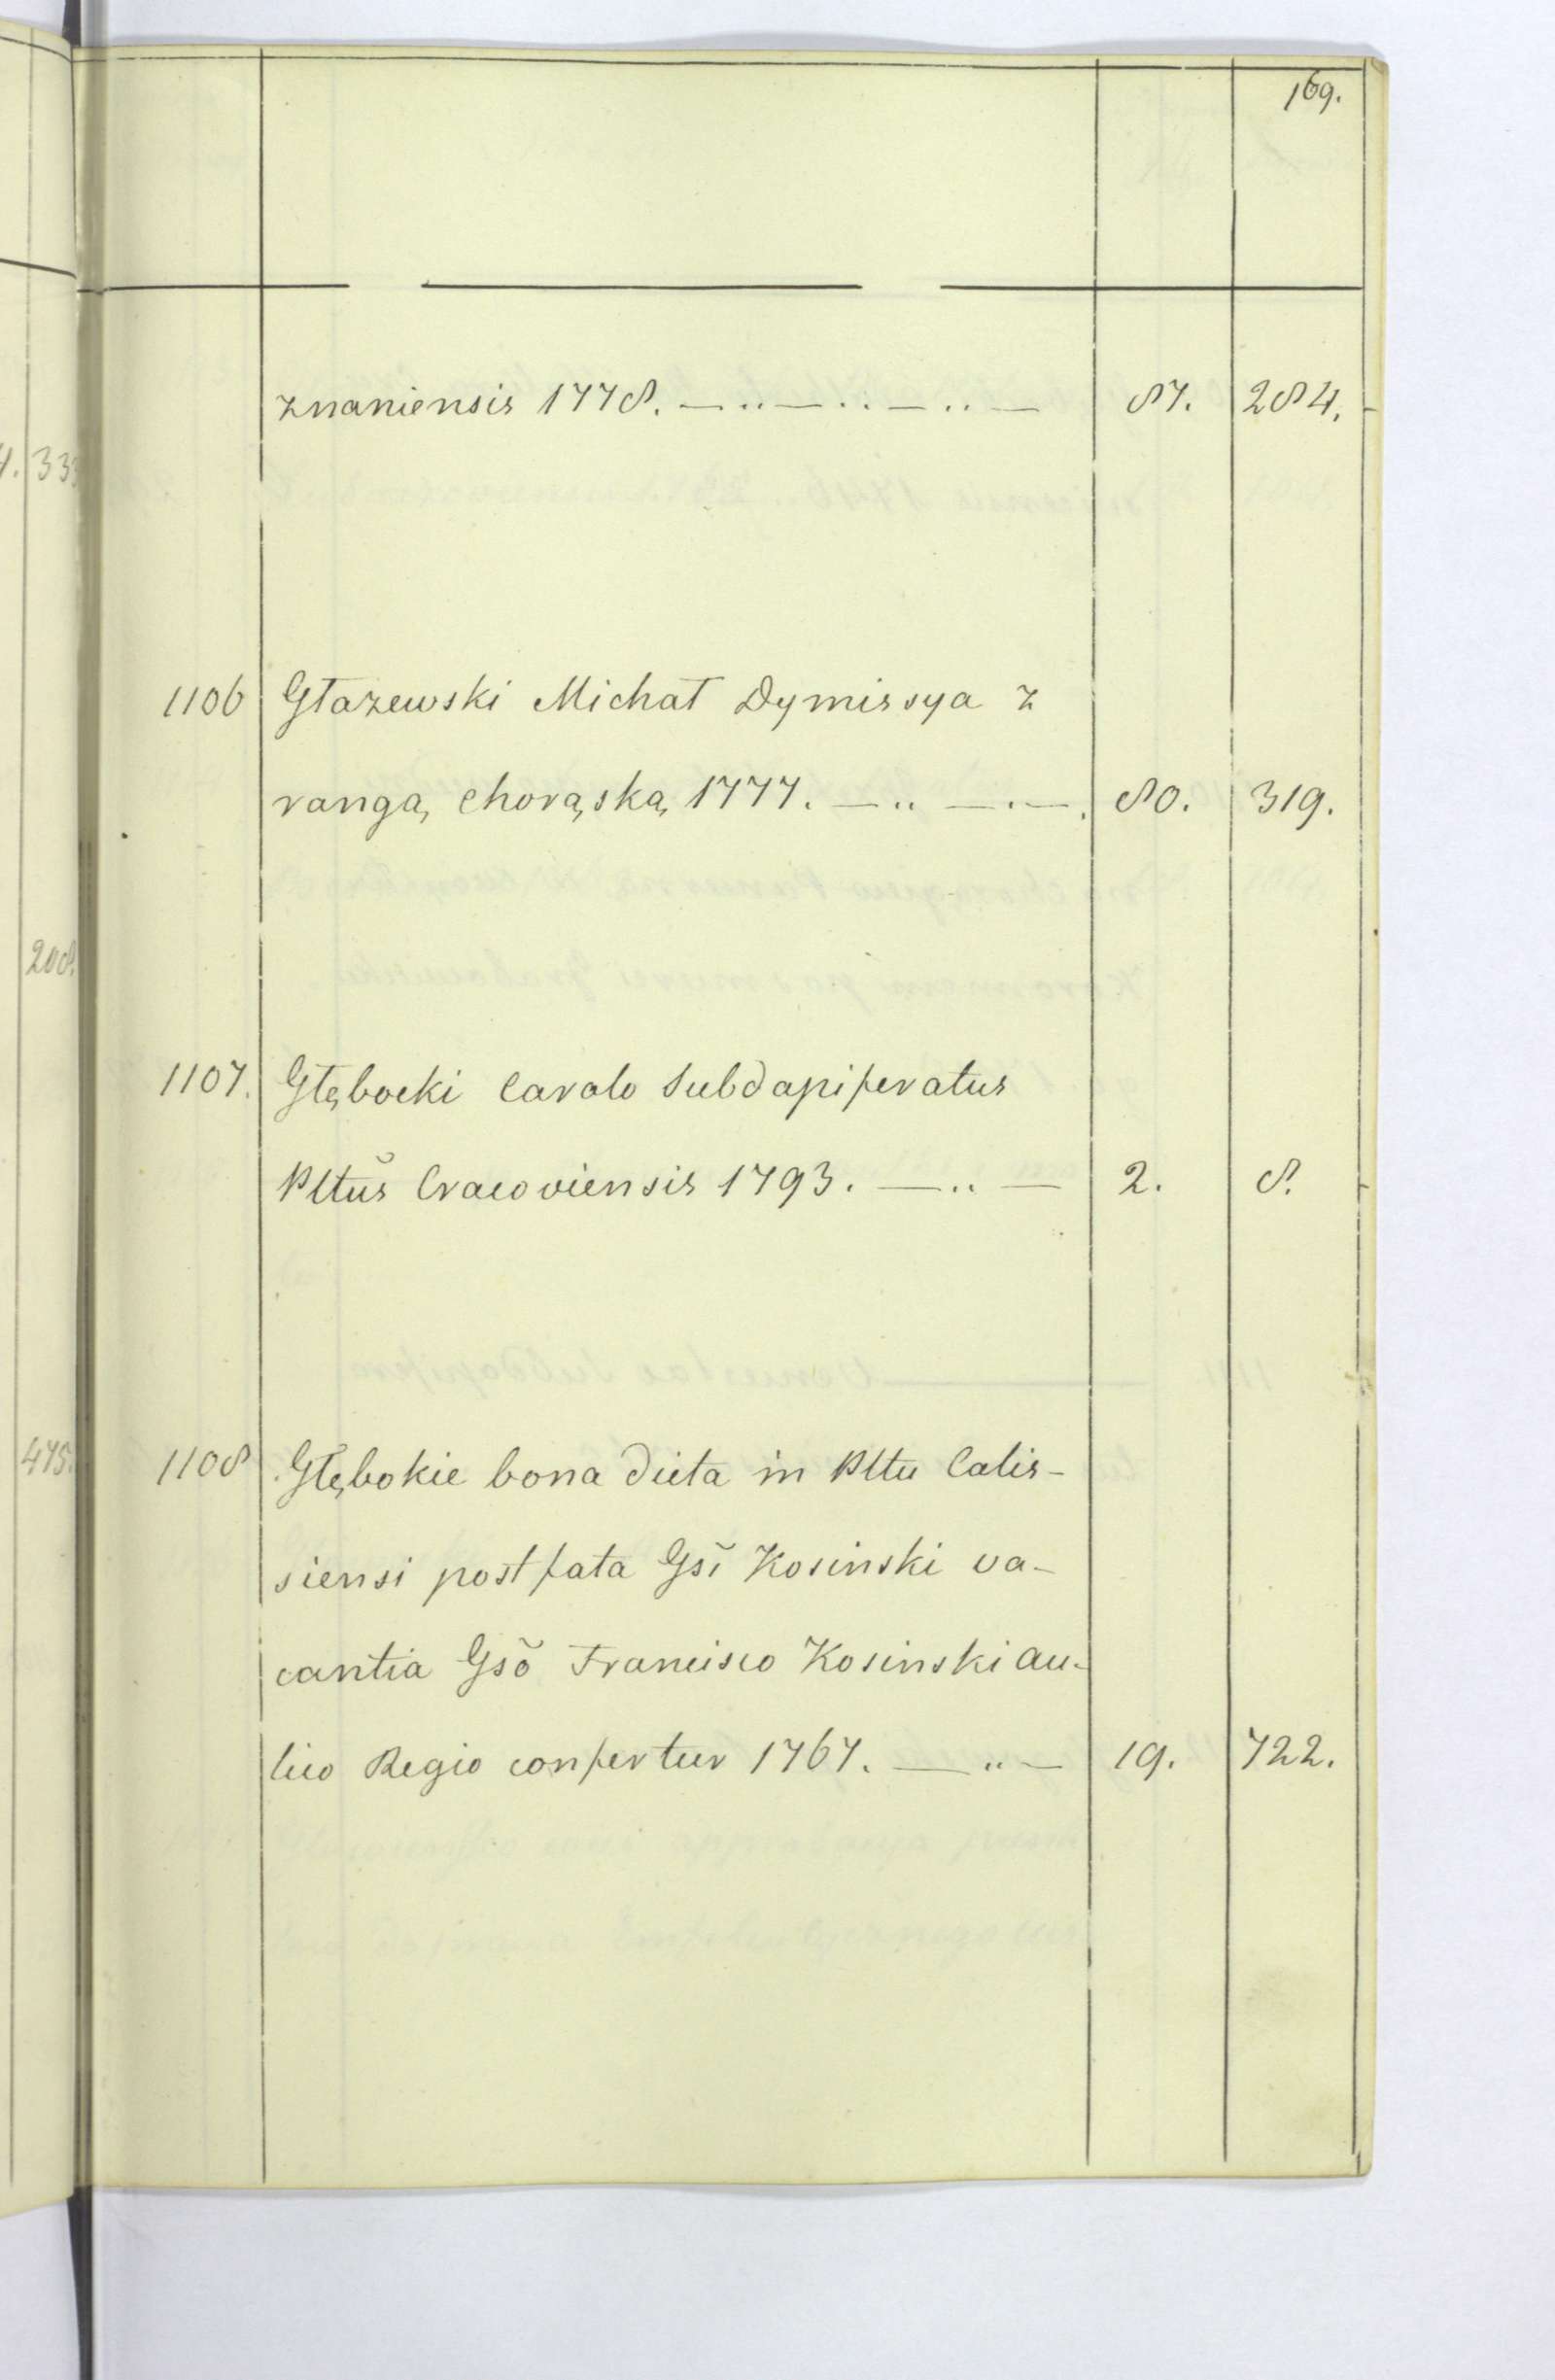 169.
znaniensis 1778. — .. — .. — .. — 87. 284.
1106 Głazewski Michał Dymissya z
rangą chorąską 1777. — .. — . — . 80. 319.
1107. Głębocki Carolo Subdapiferatus
Pltũs Cracoviensis 1793. — .. — 2. 8.
1108 Głębokie bona dicta in Pltu Calis-
siensi post fata Gsĩ Kosinski va-
cantia Gsõ Francisco Kosinski au-
lico Regio confertur 1767. — .. — 19. 722.
333
208.
475.